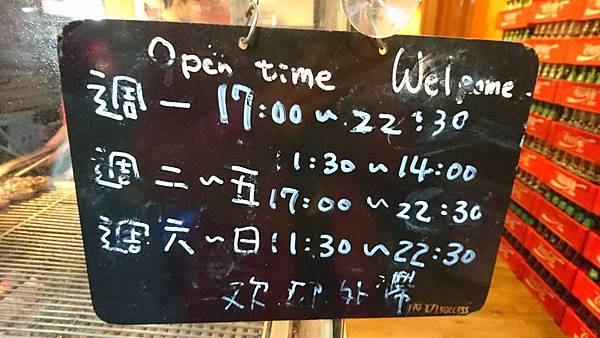 Open time Welcome
週一 17:00~22:30
週二~五 11:30~14:00
17:00~22:30
週六~日 11:30~22:30
欢迎外帶
成功 SUCCESS